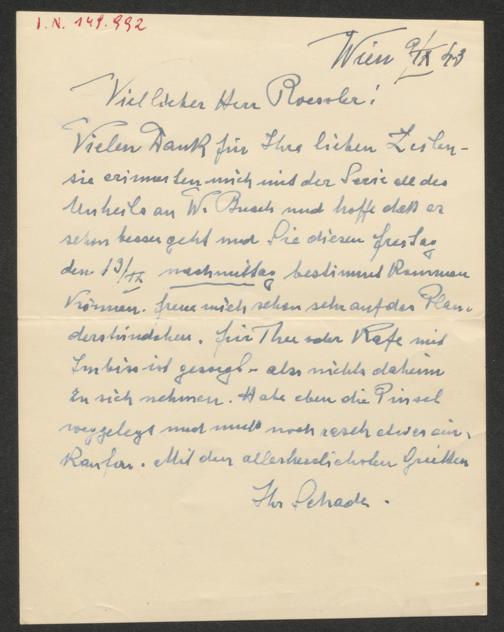 I.N. 149.992
Wien 9/IX 43
Viellieber Herr Roessler!
Vielen Dank für Ihre lieben Zeilen -
sie erinnerten mich mit der Serie all des
Unheils an W. Busch und hoffe daß es
schon besser geht und Sie diesen Freitag
den 13/IX nachmittag bestimmt kommen
können. Freue mich schon sehr auf das Plau-
derstündchen. Für Thee oder Kafe mit
Imbis ist gesorgt - also nichts daheim
zu sich nehmen. Habe eben die Pinsel
weggelegt und muß noch rasch etwas ein-
kaufen. Mit den allerherzlichsten Grüßen
Ihr